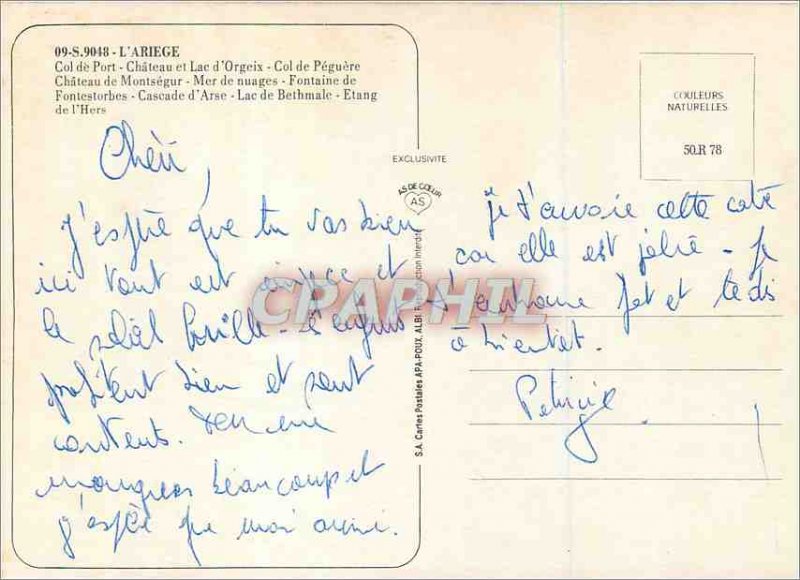 09-S.9048 - L'ARIEGE
Col de Port - Château et Lac d'Orgeix - Col de Péguère
Château de Montségur - Mer de nuages - Fontaine de
Fontestorbes - Cascade d'Arse - Lac de Bethmale - Etang
de l'Hers
Chéri,
J'espère que tu vas bien
ici tout est et
le soleil brille -
profitent bien et sont
contents.
beaucoup et
j'espère que moi aussi.
EXCLUSIVITE
AS DE CŒUR
AS
S.A. Cartes Postales APA-POUX, ALBI Reproduction Interdite
COULEURS
NATURELLES
50.R 78
je t'envoie cette carte
car elle est jolie - Je
t'embrasse fort et te dis
à bientôt.
CPAPHIL